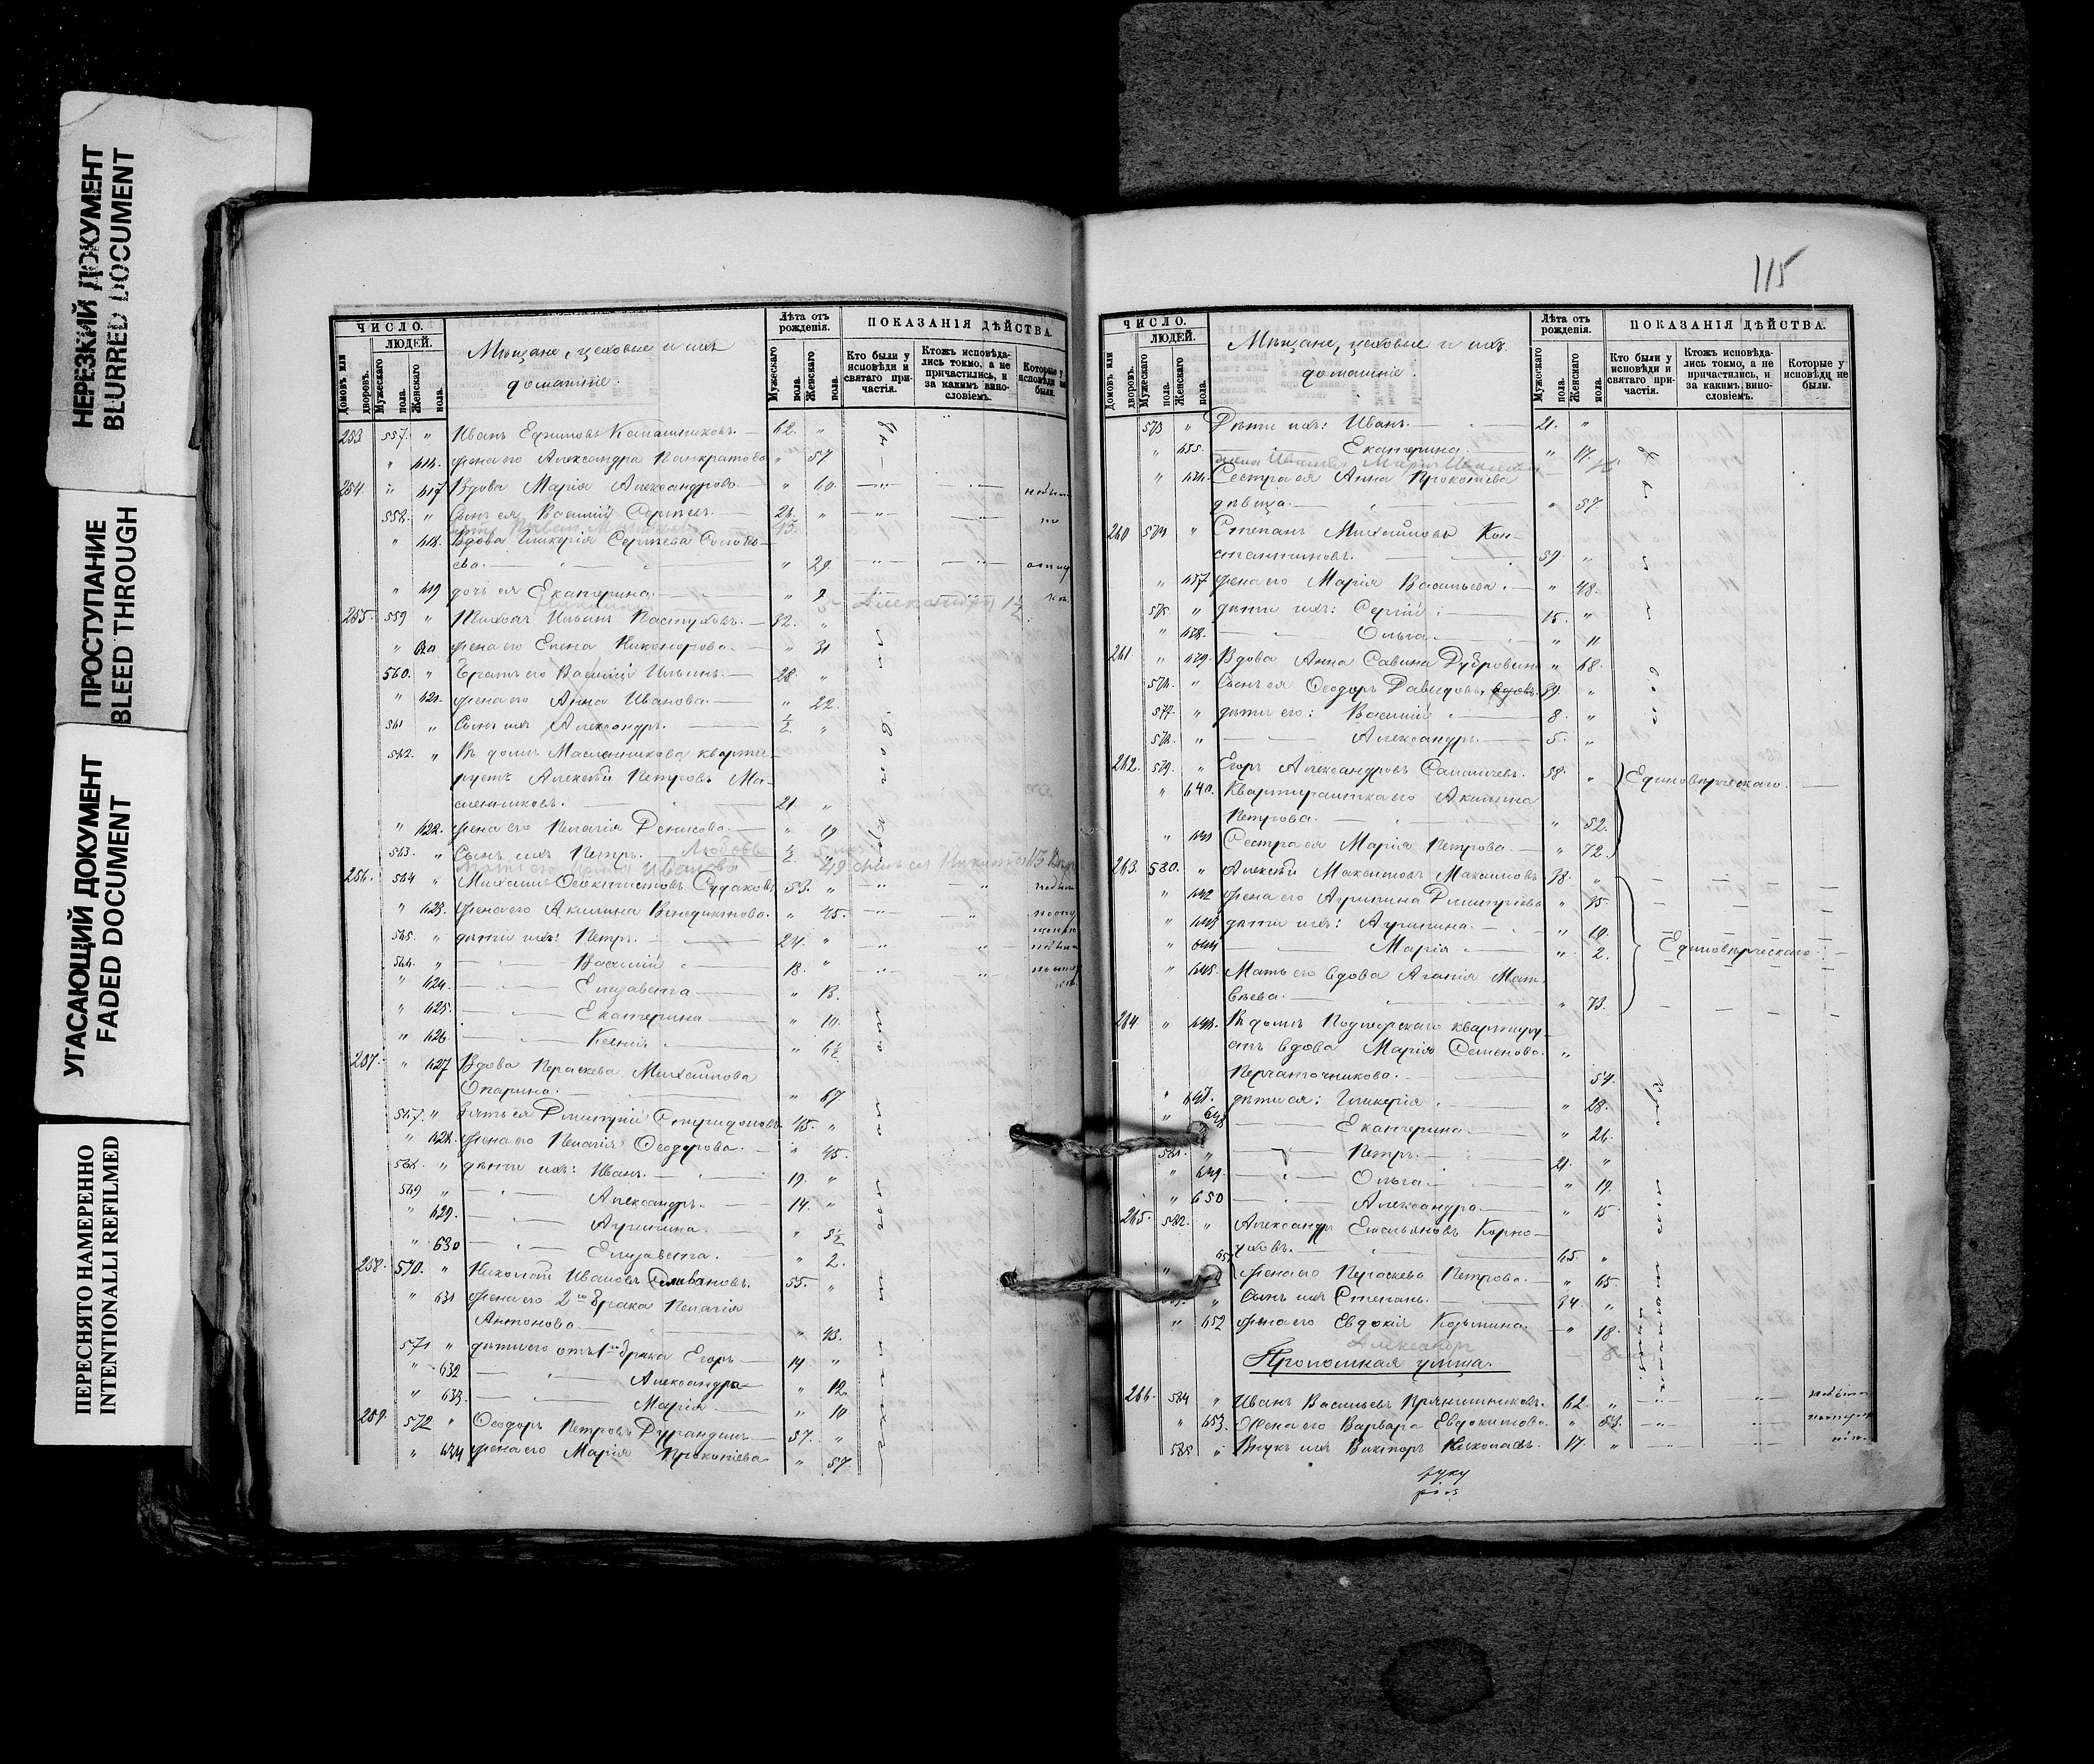 НЕРЕЗКИЙ ДОКУМЕНТ
BLURRED DOCUMENT
ПРОСТУПАНИЕ
BLEED THROUGH
УГАСАЮЩИЙ ДОКУМЕНТ
FADED DOCUMENT
ПЕРЕСНЯТО НАМЕРЕННО
INTENTIONALLI REFILMED
ЧИСЛО.
ЛЮДЕЙ.
Домовъ или дворовъ.
Мужескаго пола.
Женскаго пола.
Мѣщане, цеховые и ихъ
домашніе.
Лѣта отъ рожденія.
Мужескаго пола.
Женскаго пола.
ПОКАЗАНІЯ ДѢЙСТВА.
Кто были у исповѣди и святаго причастія.
Ктожъ исповѣдались токмо, а не причастились, и за какимъ винословіемъ.
Которые у исповѣди не были.
253 557 " Иванъ Ефимовъ Калашниковъ. 62. "
" 616. Жена его Александра Панкратова " 57
254 " 617 Вдова Марія Александрова " 60.
558. " Сынъ ея Василій Сергѣевъ. 26. "
" 618. Вдова Гликерія Сергѣева
" 29.
" 619 дочь ея Екатерина. " 2
255. 559 " Михаилъ Ильинъ Пастуховъ. 32. "
" 620 Жена его Елена Никонорова. " 31
560. " Братъ его Василій Ильинъ. 28. "
" 621. Жена его Анна Иванова. " 22.
561 " Сынъ ихъ Александръ. ½ "
562. " Въ домѣ Масленникова кварти-
руетъ Алексѣй Петровъ Ма-
сленниковъ. 21. "
" 622. Жена его Пелагія Денисова. " 19
563. " Сынъ ихъ Петръ. Любовь ½ "
256. 564 " Михаилъ Ѳеоктистовъ Судаковъ 53. "
" 623. Жена его Акилина Венедиктова. " 45.
565. " дѣти ихъ: Петръ. 24. "
566. " Василій 18. "
" 624. Елизавета " 13.
" 625. Екатерина " 10.
" 626. Ксенія " 6½
257. " 627 Вдова Параскева Михайлова
Опарина. " 67
567. " Зять ея Димитрій Спиридоновъ. 45. "
" 628. Жена его Пелагія Ѳеодорова. " 45.
568. " дѣти ихъ: Иванъ. 19. "
569 " Александръ. 14. "
" 629. Агрипина. " 5½
" 630 Елизавета. " 2.
258. 570. " Николай Ивановъ Селивановъ. 55. "
" 631 Жена его 2го брака Пелагія
Антонова " 43.
571 " дѣти его отъ 1го брака Егоръ 14 "
" 632 Александра " 12.
" 633. Марія " 10.
259. 572 " Ѳеодоръ Петровъ Дурандинъ 57. "
" 634 Жена его Марія Прокопіева " 57.
115
ЧИСЛО.
ЛЮДЕЙ.
Домовъ или дворовъ.
Мужескаго пола.
Женскаго пола.
Мѣщане, цеховые и ихъ
домашніе.
Лѣта отъ рожденія.
Мужескаго пола.
Женскаго пола.
ПОКАЗАНІЯ ДѢЙСТВА.
Кто были у исповѣди и святаго причастія.
Ктожъ исповѣдались токмо, а не причастились, и за какимъ винословіемъ.
Которые у исповѣди не были.
573 " Дѣти ихъ: Иванъ. 21. "
" 635. Екатерина. " 17.
" 636. Сестра ея Анна Прокопіева
дѣвица. " 57.
260 574 " Степанъ Михайловъ Кон-
стантиновъ. 59. "
" 637 Жена его Марія Васильева. " 48.
575. " дѣти ихъ: Сергій 15. "
" 638. Ольга " 11
261 " 639. Вдова Анна Савина Дубровина " 68.
576. " Сынъ ея Ѳеодоръ Давидовъ, вдовъ. 39. "
577. " дѣти его: Василій 8. "
578. " Александръ. 5. "
262. 579. " Егоръ Александровъ 58. " Единовѣрческаго.
" 640. Квартирантка его Акилина
Петрова. " 52.
" 641 Сестра ея Марія Петрова. " 72.
263. 580. " Алексѣй Максимовъ Максимовъ 38. "
" 642 Жена его Агрипина Димитріева " 35.
" 643 дѣти ихъ: Агрипина. " 10.
" 644 Марія " 2. Единовѣрческаго.
" 645. Мать его вдова Агапія Мат-
вѣева. " 73.
264 " 646. Въ домѣ Подгорскаго квартиру-
етъ вдова Марія Семенова "
Перчаточникова. 54.
" 647. дѣти ея: Гликерія " 28.
" 648 Екатерина " 26.
581. " Петръ. 21. "
" 649. Ольга " 19.
" 650 Александра " 15.
265. 582. " Александръ Емельяновъ Корно-
уховъ. 65. "
" 651 Жена его Параскева Петрова. " 65.
583. " Сынъ ихъ Степанъ. 24. "
" 652 Жена его Евдокія Козьмина. " 18.
Александръ
Проломная улица.
266. 584 " Иванъ Васильевъ Прянишниковъ. 62. "
" 653. Жена его Варвара Евдокимова. " 53.
585 " Внукъ ихъ Викторъ Николаевъ. 17. "